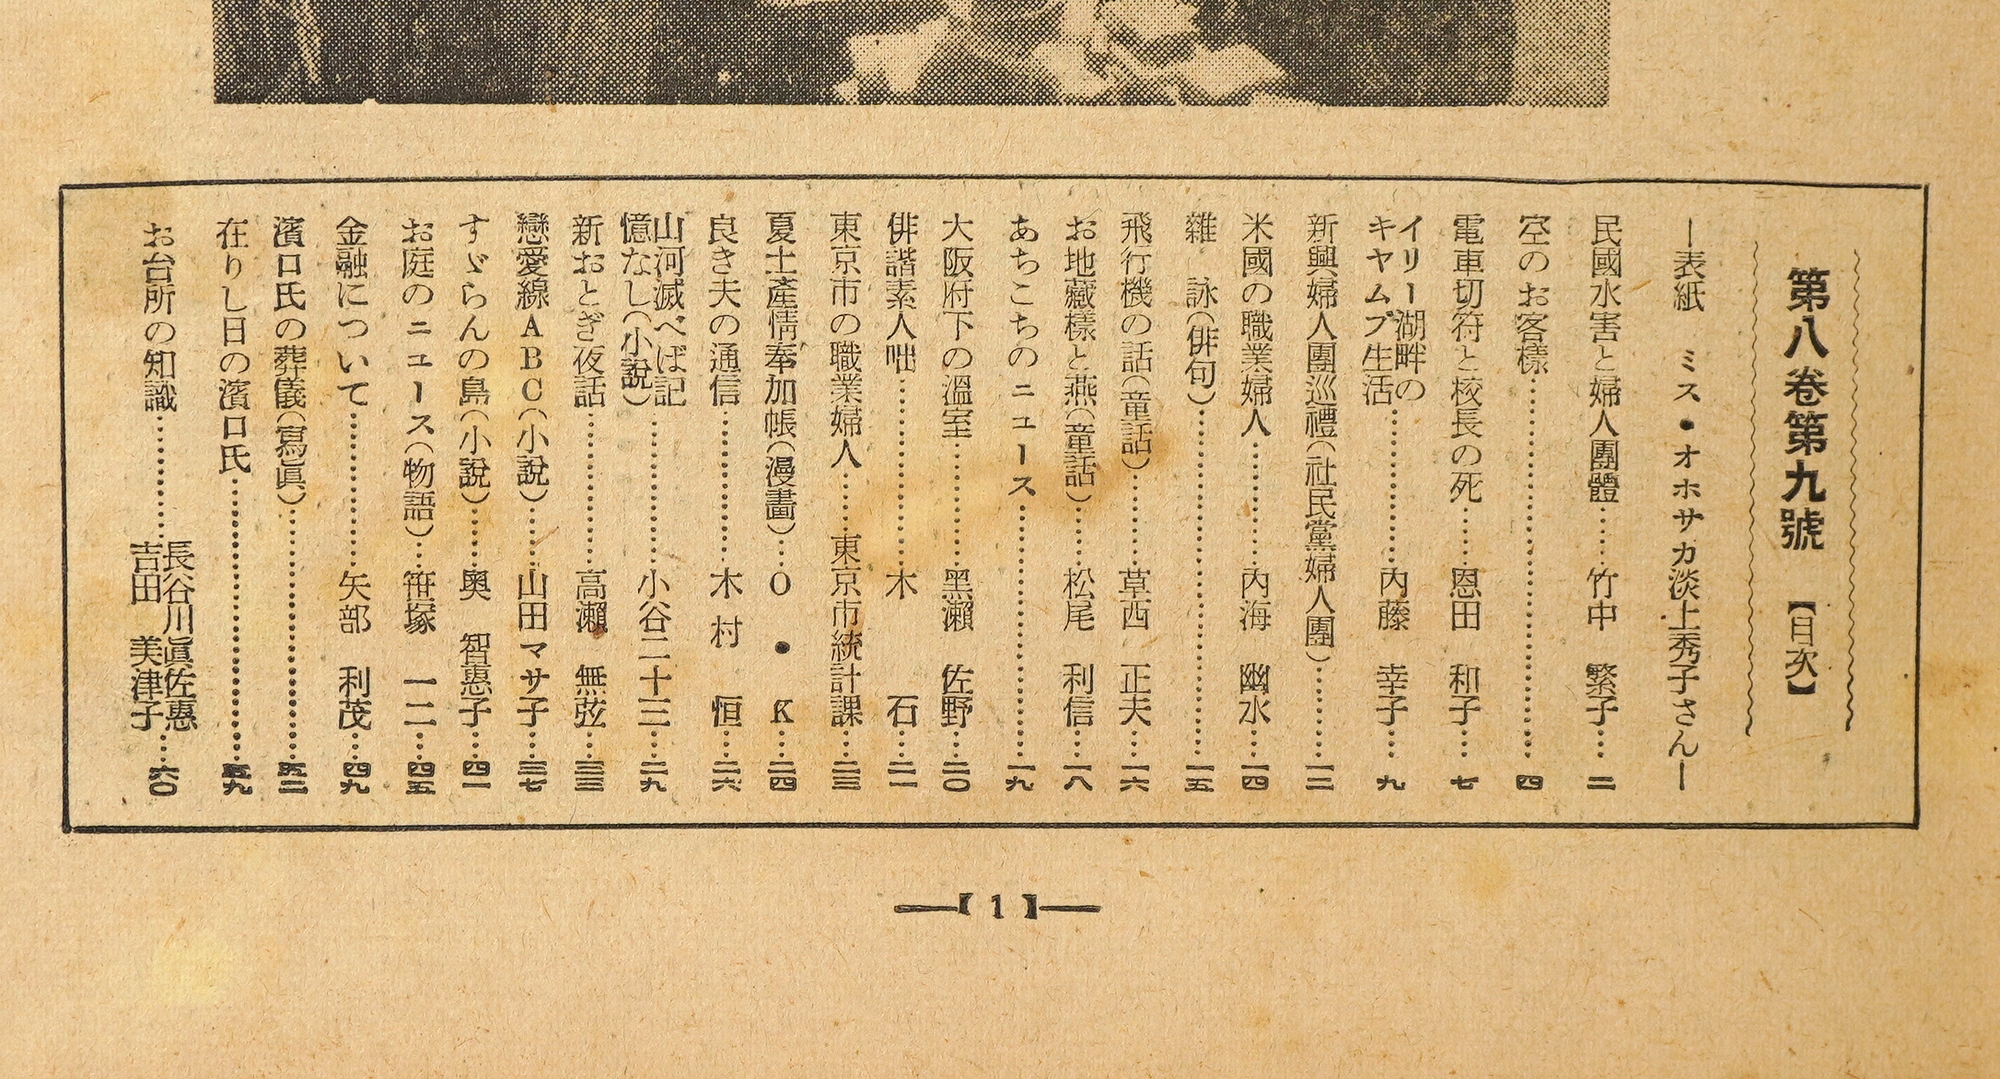 第八卷第九號 【目次】
―表紙 ミス・オホサカ淡上秀子さん―
民國水害と婦人團體……竹中 繁子…二
空のお客樣……四
電車切符と校長の死……恩田 和子…七
イリー湖畔の
キヤムプ生活……內藤 幸子…九
新興婦人團巡禮(社民黨婦人團)……一二
米國の職業婦人……內海 幽水…一四
雜 詠(俳句)……一五
飛行機の話(童話)……草西 正夫…一六
お地藏樣と燕(童話)……松尾 利信…一八
あちこちのニュース……一九
大阪府下の溫室……黑瀨 佐野…二〇
俳諧素人咄……木 石…二一
東京市の職業婦人……東京市統計課…二三
夏土產情奉加帳(漫畫)…O・K…二四
良き夫の通信……木村 恒…二六
山河滅べば記
憶なし(小說)……小谷二十三…二九
新おとぎ夜話……高瀨 無弦…三三
戀愛線ABC(小說)……山田マサ子…三七
すゞらんの島(小說)……奧 智惠子…四一
お庭のニュース(物語)…笹塚 一二…四五
金融について……矢部 利茂…四九
濱口氏の葬儀(寫眞)……五二
在りし日の濱口氏……五九
お台所の知識……長谷川眞佐惠
吉田 美津子…六〇
―【1】―